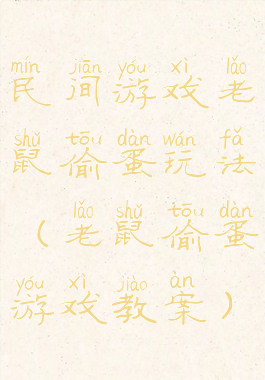 mín jiān yóu xì lǎo
民间游戏老
shǔ tōu dàn wán fǎ
鼠偷蛋玩法
lǎo shǔ tōu dàn
（老鼠偷蛋
yóu xì jiào àn
游戏教案）